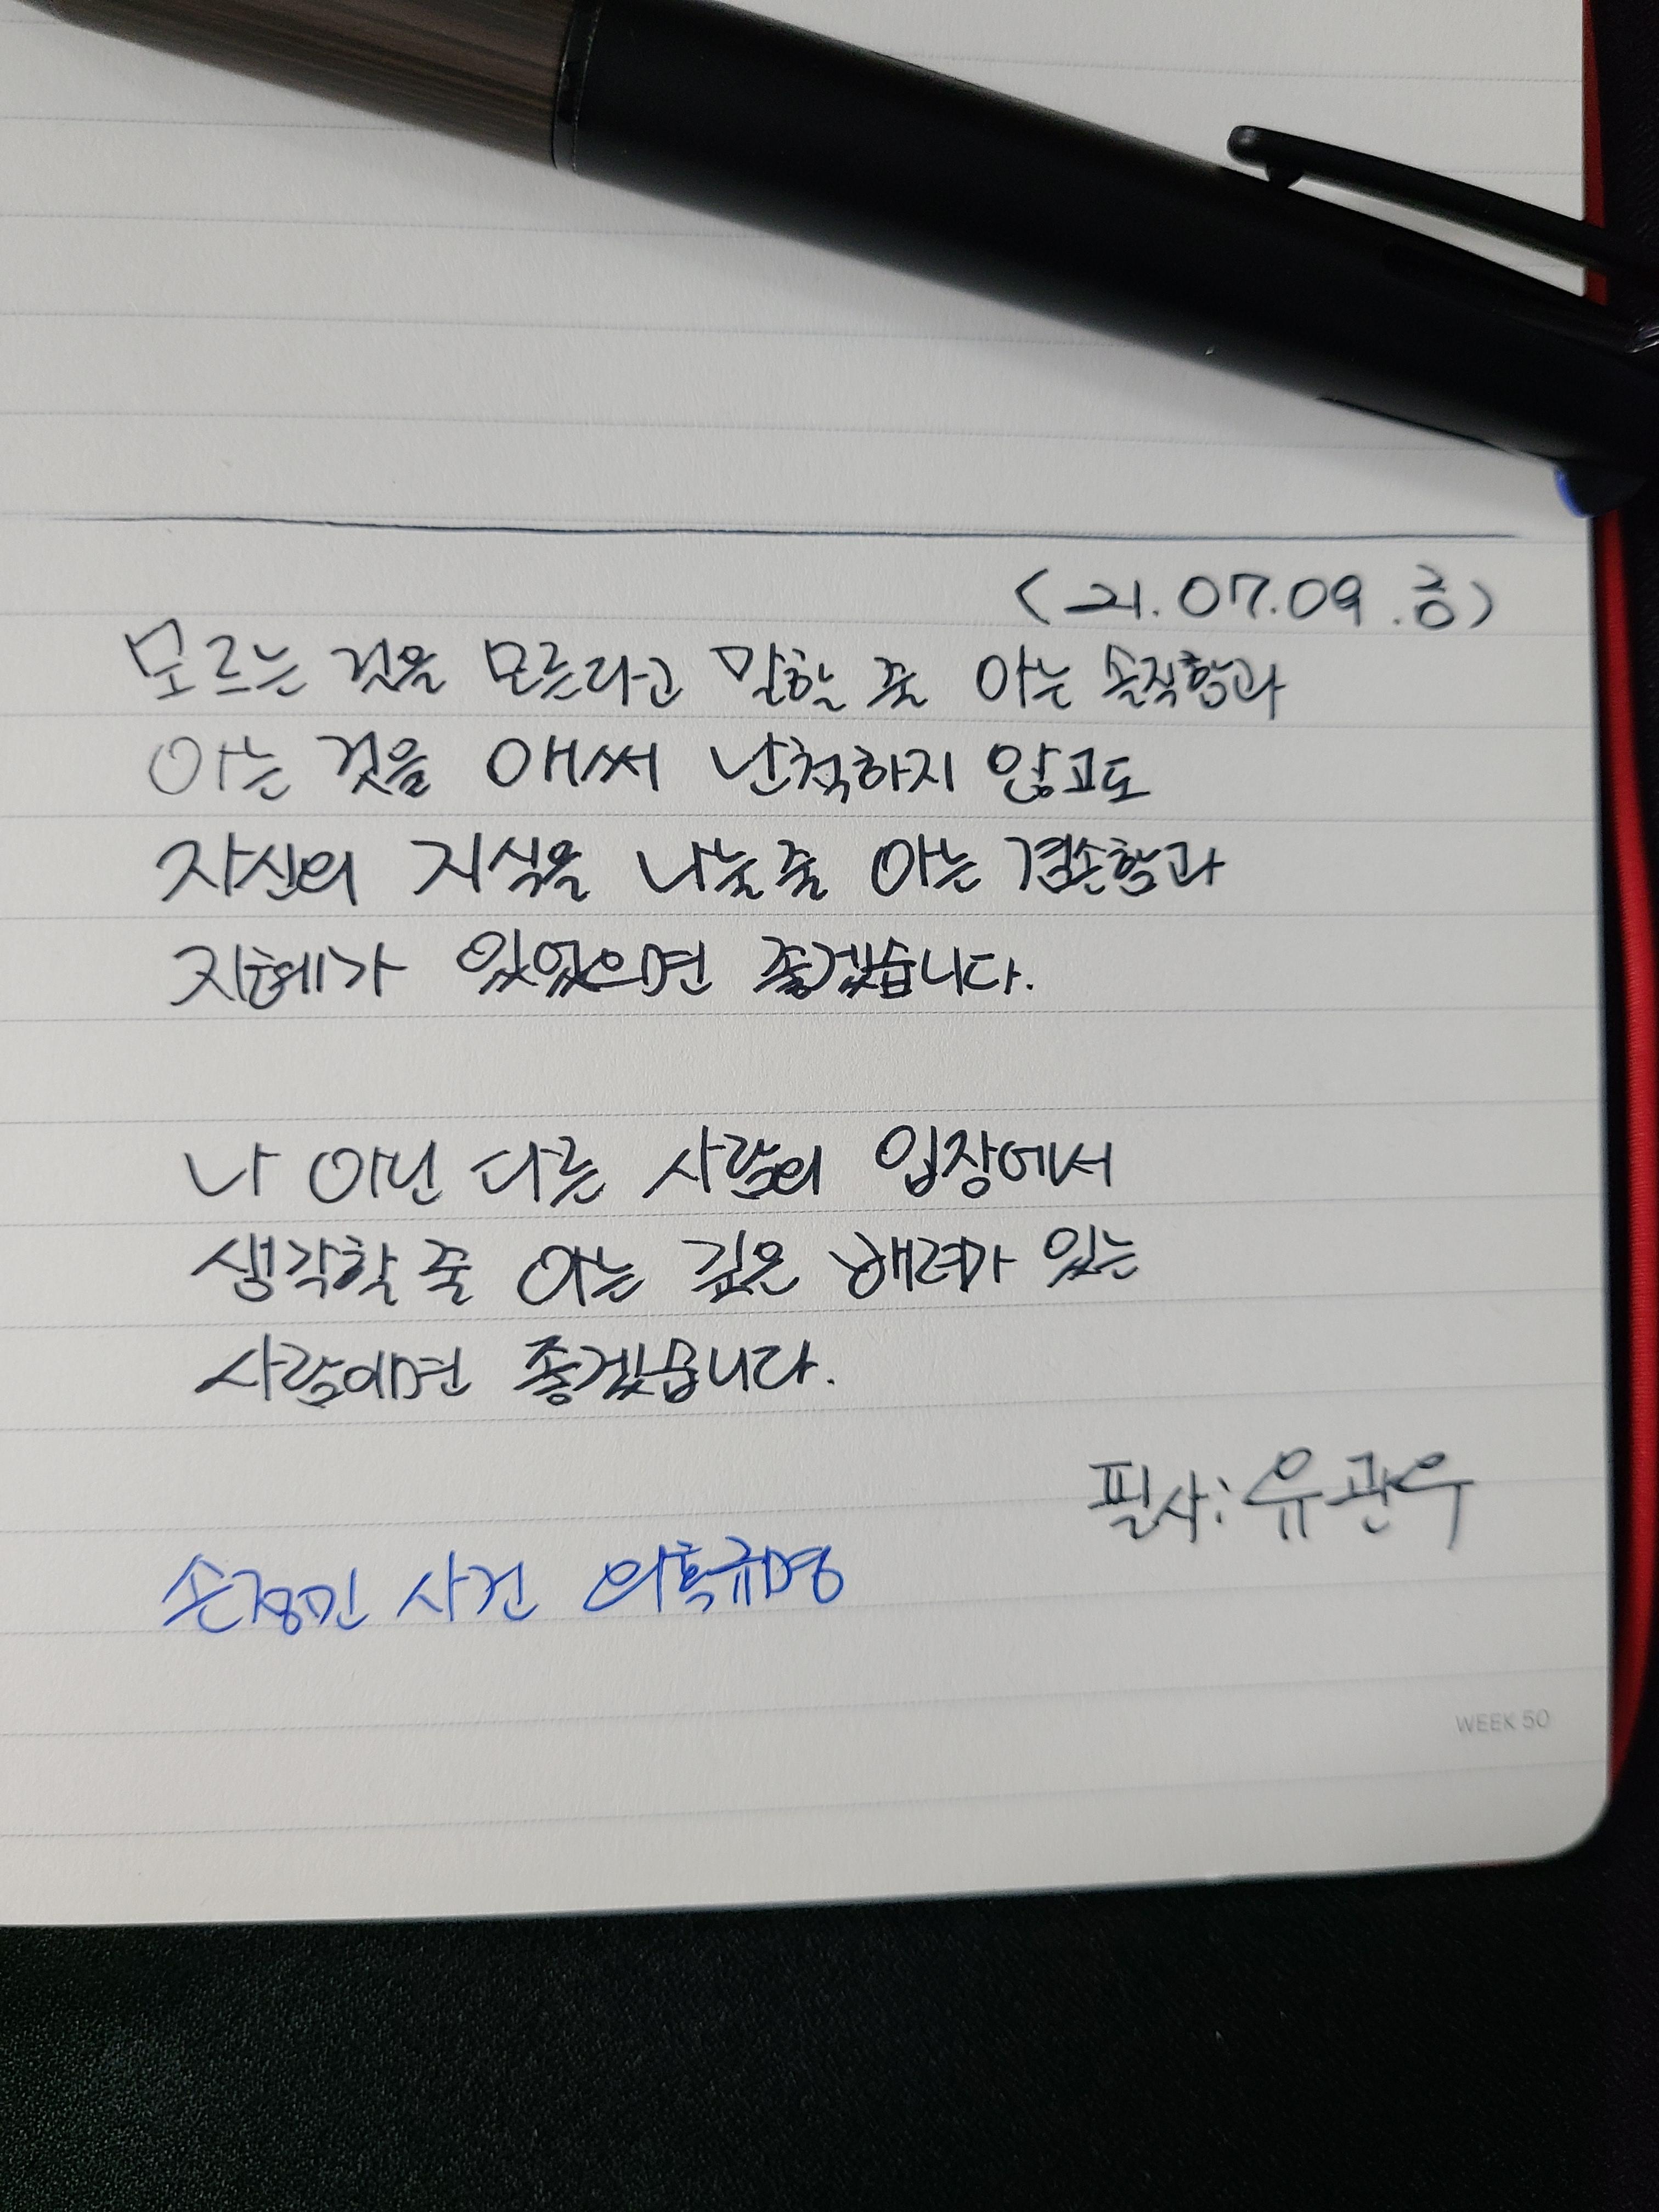 (21.07.09.금)
모르는 것을 모른다고 말할 줄 아는 솔직함과
아는 것을 애써 난척하지 않고도
자신의 지식을 나눌 줄 아는 겸손함과
지혜가 있었으면 좋겠습니다.
나 아닌 다른 사람의 입장에서
생각할 줄 아는 깊은 배려가 있는
사람이면 좋겠습니다.
필사: 유관우
손정민 사건 의혹규명
WEEK 50